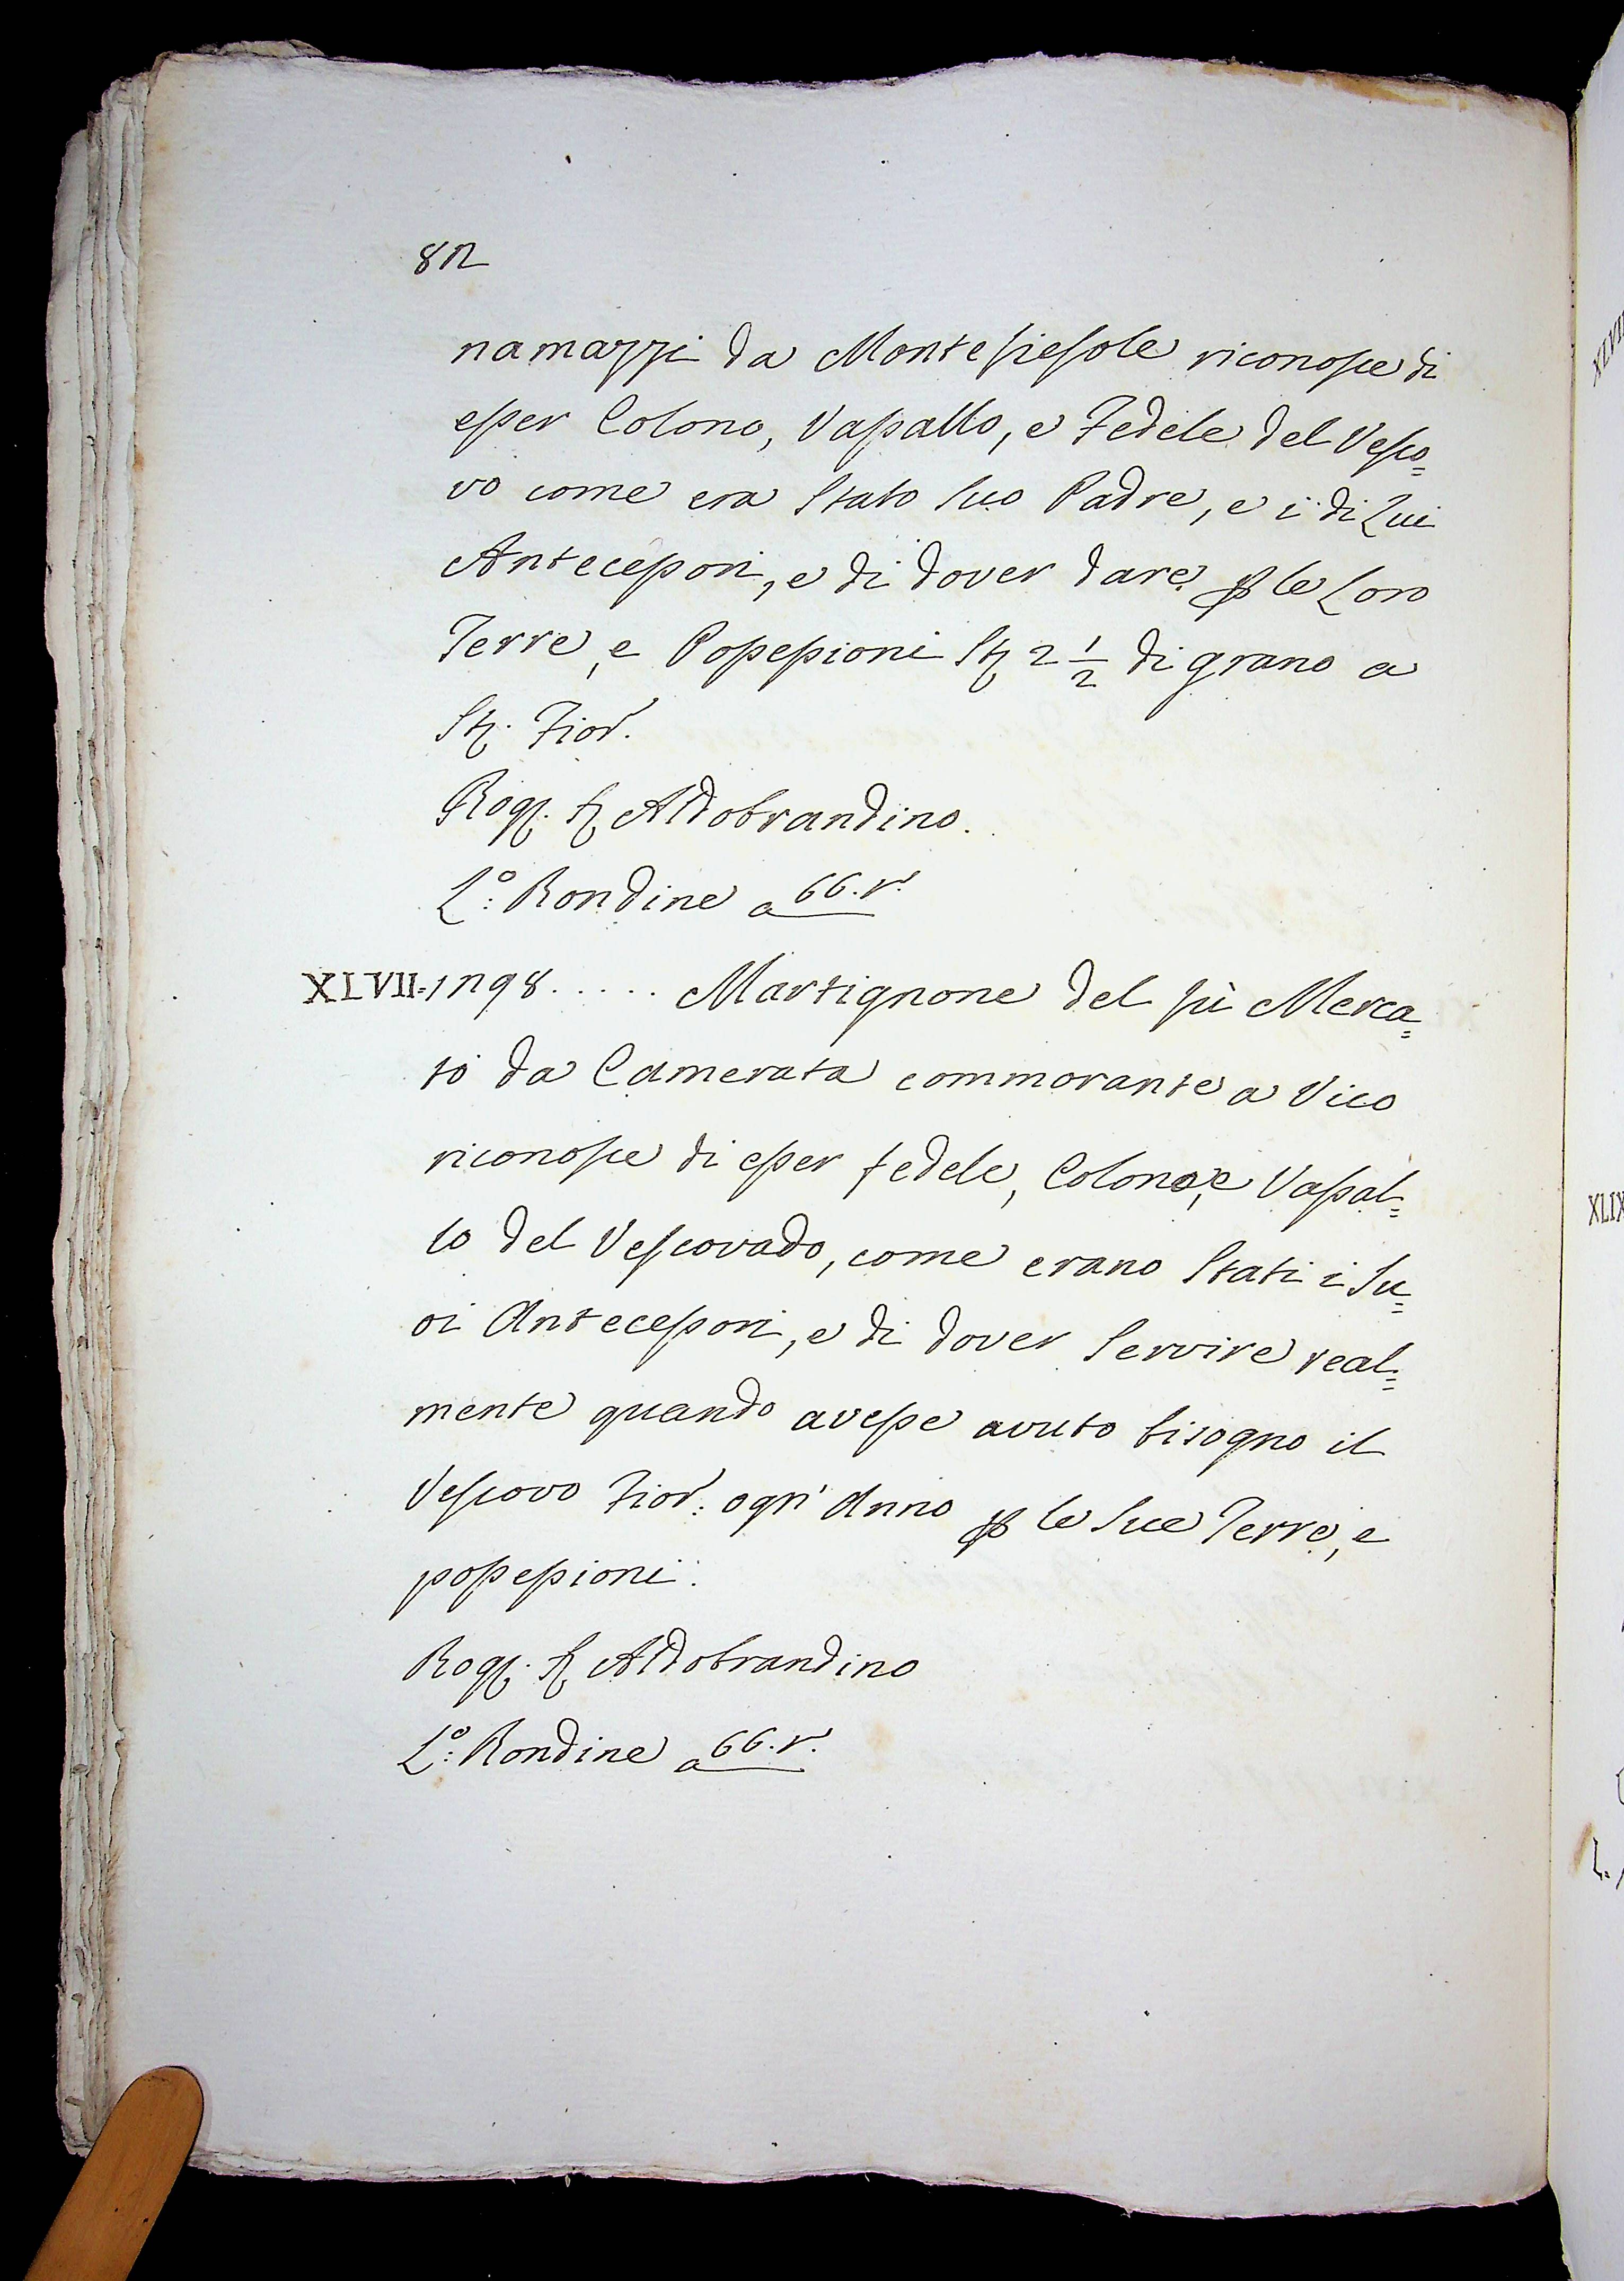 82
namazzi da Montefiesole riconosce di
esser Colono, Vassallo, e Fedele del Vesco=
vo come era Stato Suo Padre, e i di Lui
Antecessori, e di dover dare ꝑ le Loro
Terre, e Possessioni St. 2 1/2 di grano a
St. Fior.
Rog. S. Aldobrandino.
L.º: Rondine a 66. r.
XLVII. 1298..... Martignone del fù Merca=
to da Camerata commorante a Vico
riconosce di esser fedele, Colono, e Vassal=
lo del Vescovado, come erano Stati i Su=
oi Antecessori, e di dover Servire real=
mente quando avesse avuto bisogno il
Vescovo Fior: ogn' Anno ꝑ le Sue Terre, e
possessioni.
Rog. S. Aldobrandino
L.º: Rondine a 66. r.
XLIX